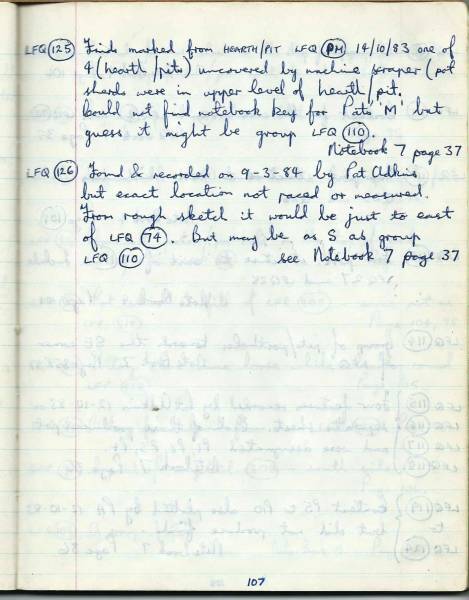 LFQ 125 Finds marked from HEARTH/PIT LFQ PM 14/10/83 one of
4 (hearth/pits) uncovered by machine scraper (pot
shards were in upper level of hearth/pit.
Could not find notebook key for Pats 'M' but
guess it might be group LFQ 110.
Notebook 7 page 37
LFQ 126 Found & recorded on 9-3-84 by Pat Adkins
but exact location not paced or measured.
From rough sketch it would be just to east
of LFQ 74. But may be as S as group
LFQ 110 see Notebook 7 page 37
107